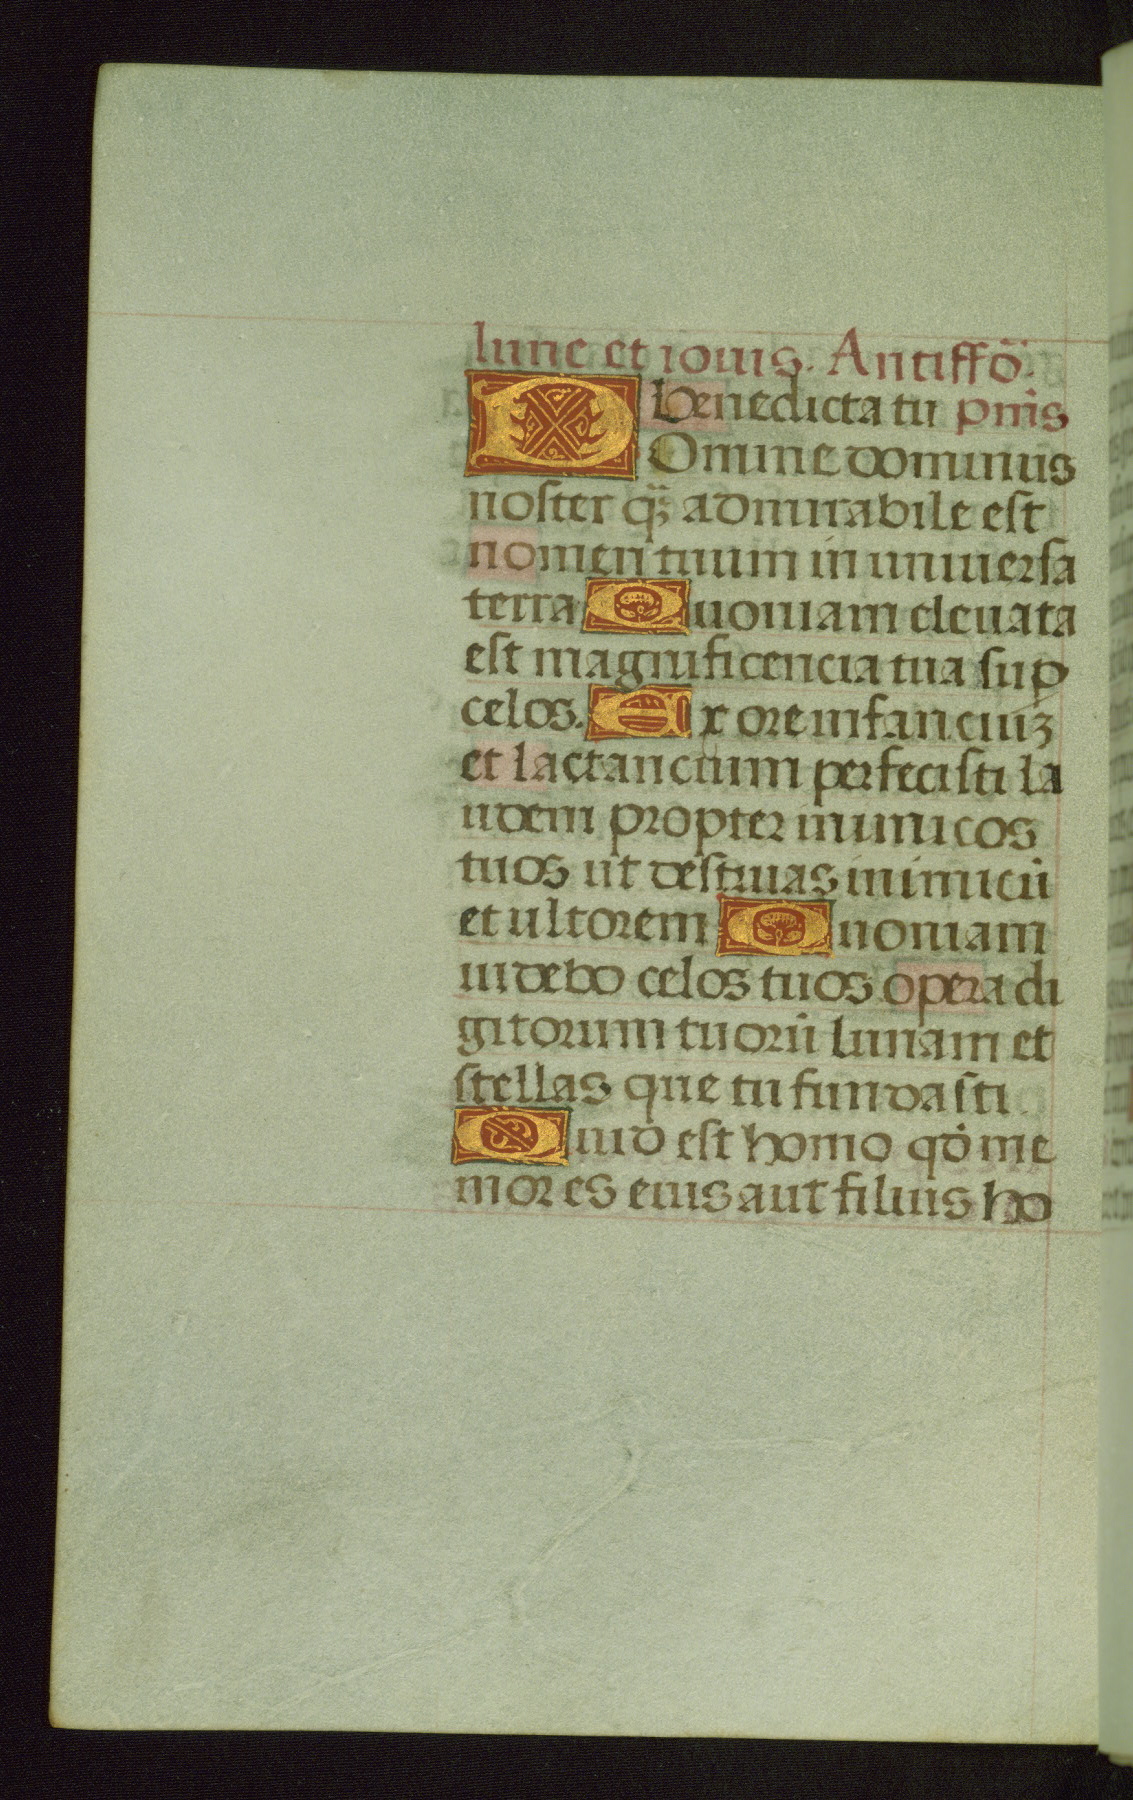 lune et iouis. Antiffō.
Benedicta tu pm̄s
DOmine dominus
noster q̄ȝ admirabile est
nomen tuum in uniuersa
terra Quoniam eleuata
est magnificencia tua suꝑ
celos. Ex ore infanciuȝ
et lactancium perfecisti la
udem propter inimicos
tuos ut destruas inimicū
et ultorem Quoniam
uidebo celos tuos opera di
gitorum tuorū lunam et
stellas que tu fundasti
Quid est homo qđ me
mor es eius aut filius ho